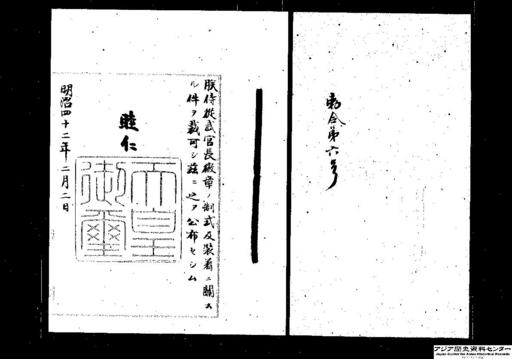 勅令第六号
朕侍従武官長徽章ノ制式及装着ニ関ス
ル件ヲ裁可シ茲ニ之ヲ公布セシム
睦仁
天皇
御璽
明治四十二年二月二日
アジア歴史資料センター
Japan Center for Asian Historical Records